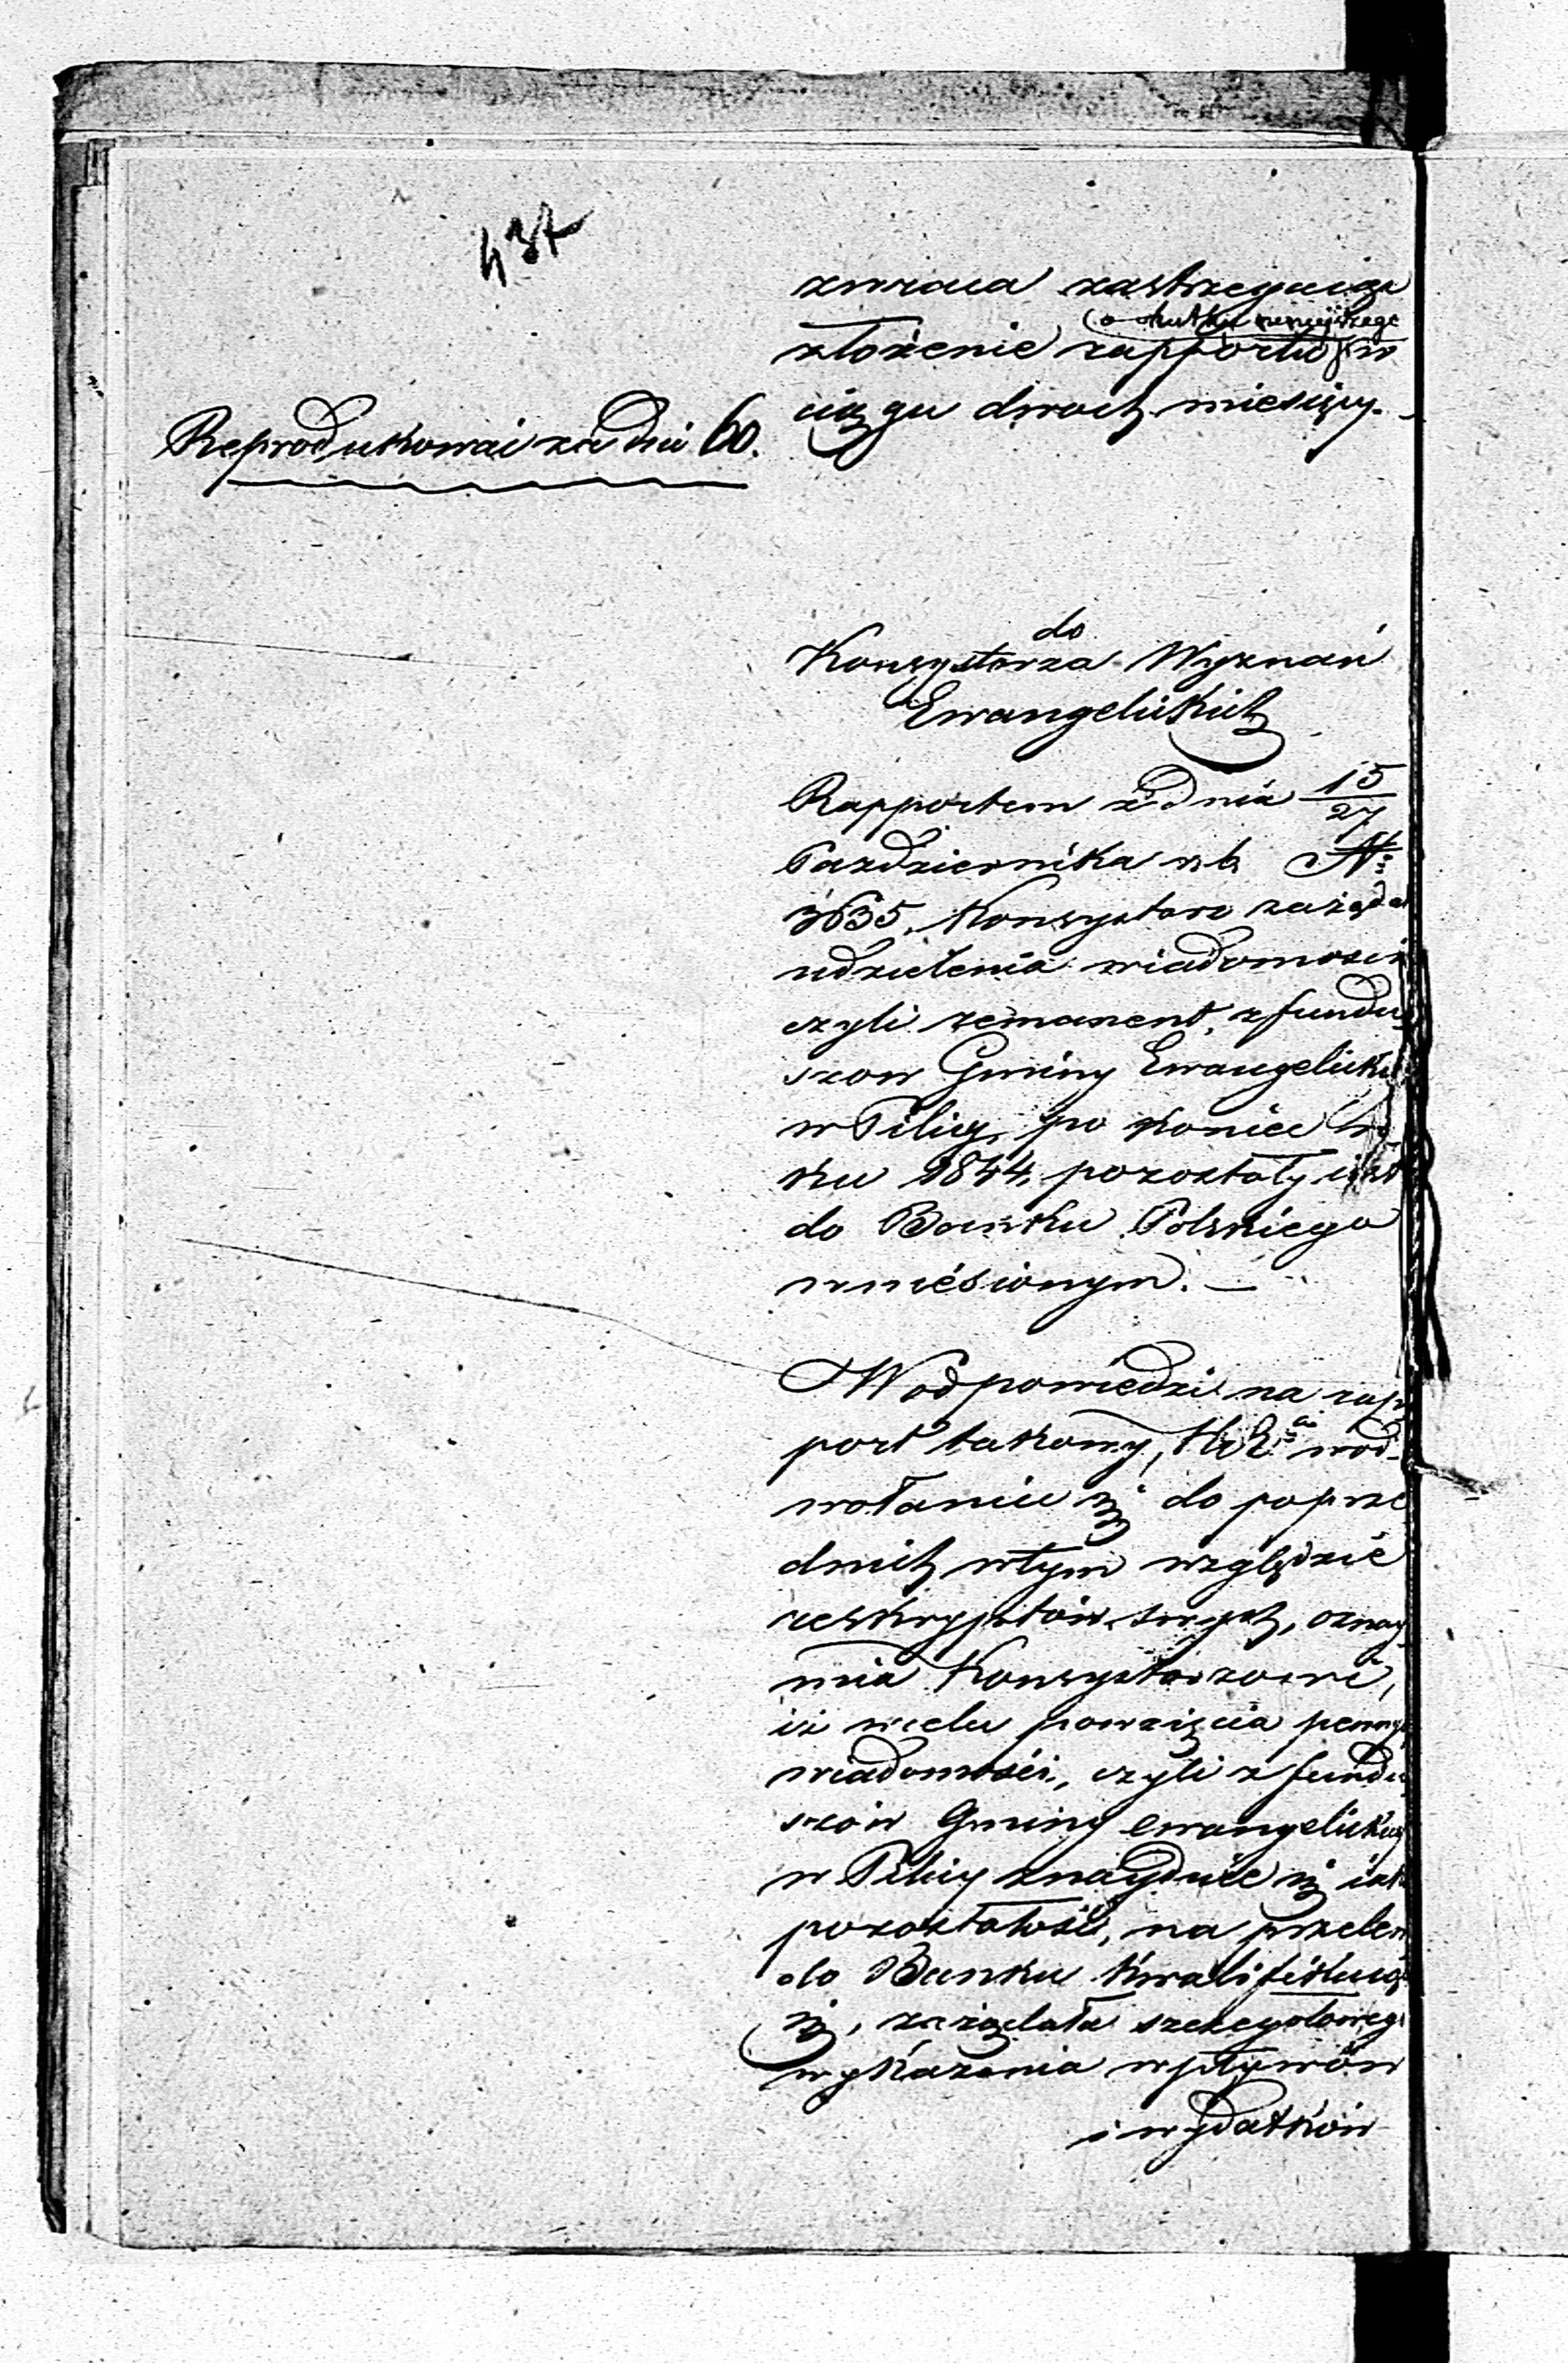 437
zwraca zastrzegając
(o skutku niniejszego
złożenie rapportu w
ciągu dwoch miesięcy. -
Reprodukować za dni 60.
do
Konsystorza Wyznań
Ewangelickich
Rapportem z dnia 15/27
Pazdziernika r. b. №
3635, Konsystorz zażądał
udzielenia wiadomości
czyli remanent, z fundu
szow Gminy Ewangelickiej
w Pilicy, po koniec ro
ku 1844, pozostały iest
do Banku Polskiego
wniesionym. —
W odpowiedzi na rap
port takowy, w od-
wołaniu się do poprze
dnich w tym względzie
reskryptów swych, oznay
mia Konsystorzowi,
iż w celu powzięcia pewney
wiadomości, czyli z fundu
szów Gminy ewangelickiey
w Pilicy znayduie się iaka
pozostałość, na przelew
do Banku kwalifikuiąca
się, zażądała szczegołowego
wykazania wpływów
i wydatków